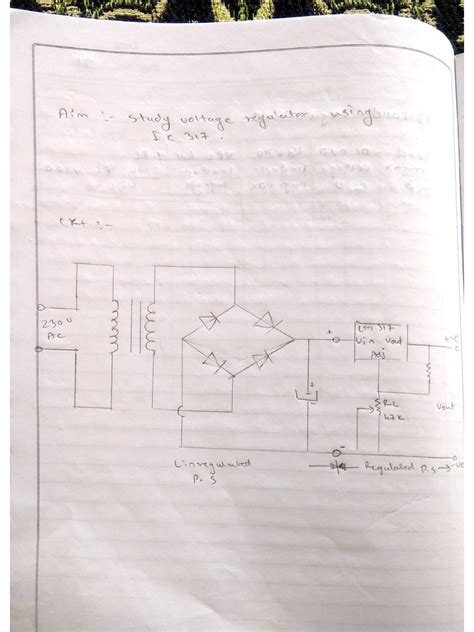 Aim :- study voltage regulator using
Ic 317.
Ckt :-
230V
AC
LM 317
Vin Vout
Adj
+ve
Vout
4.7K
+
+
-
Unregulated
P.S
Regulated P.S
-ve